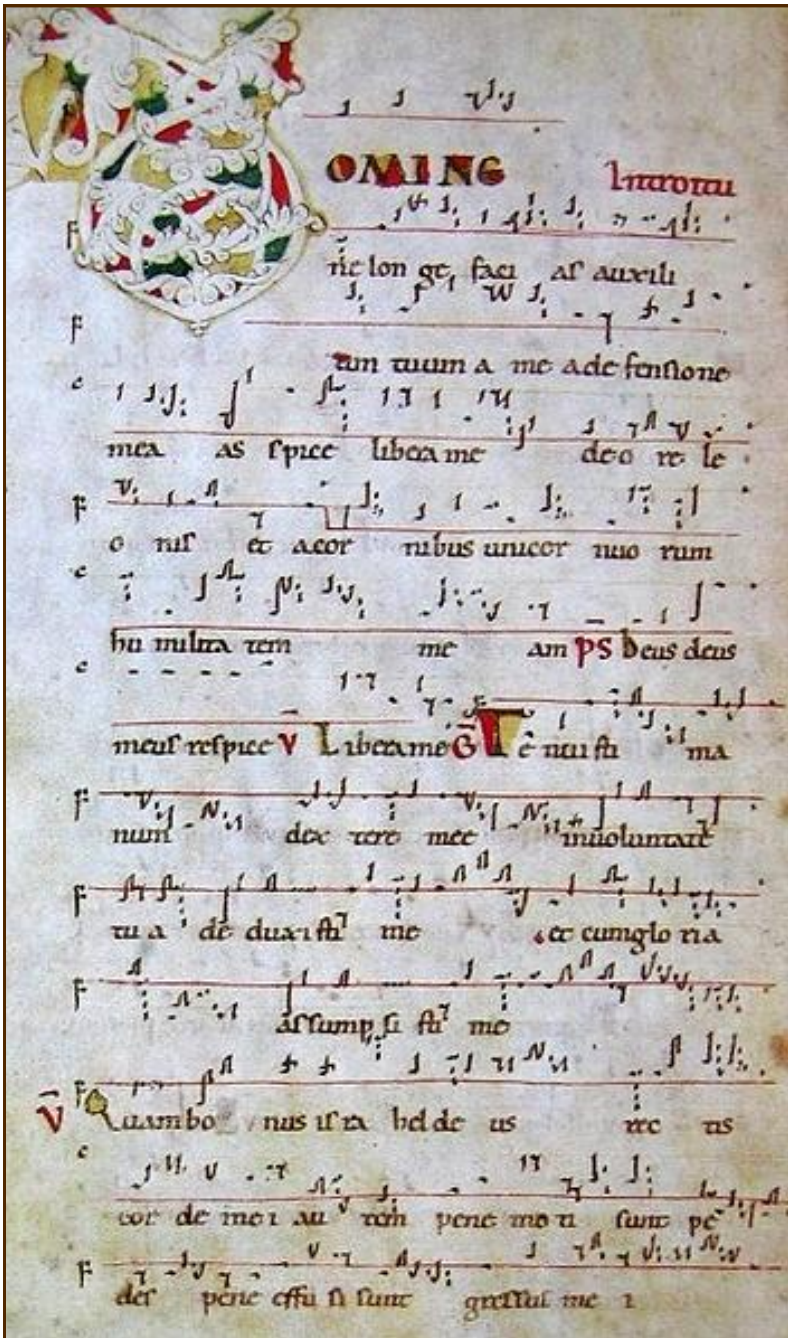 DOMINE Introitu
ne lon ge faci as auxili
um tuum a me ad defensione
mea as spice libera me de o re le
o nis et a cor nibus unicor nuo rum
hu milita tem me am PS Deus deus
meus respice V Libera me G Te nui sti ma
num dex tere mee in uoluntate
tu a de duxi sti me et cum glo ria
as sump si sti me
V Quam bo nus is ra hel de us rec tis
cor de me i au tem pene mo ti sunt pe
des pene effu si sunt gressus me i